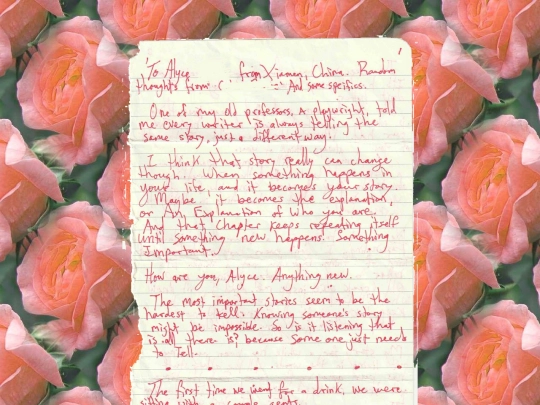 'To Alyce , from Xiamen, China. Random
thoughts from : And some specifics.
One of my old professors, a playwright, told
me every writer is always telling the
same story, just a different way.
I think that story really can change
though. When something happens in
your life, and it becomes your story.
Maybe it becomes the explanation,
or An Explanation of who you are.
And that chapter keeps repeating itself
until something new happens. Something
Important.
How are you, Alyce. Anything new.
The most important stories seem to be the
hardest to tell. Knowing someone's story
might be impossible. So is it listening that
is all there is? because someone just needs
to Tell.
The first time we went for a drink, we were
sitting with a couple